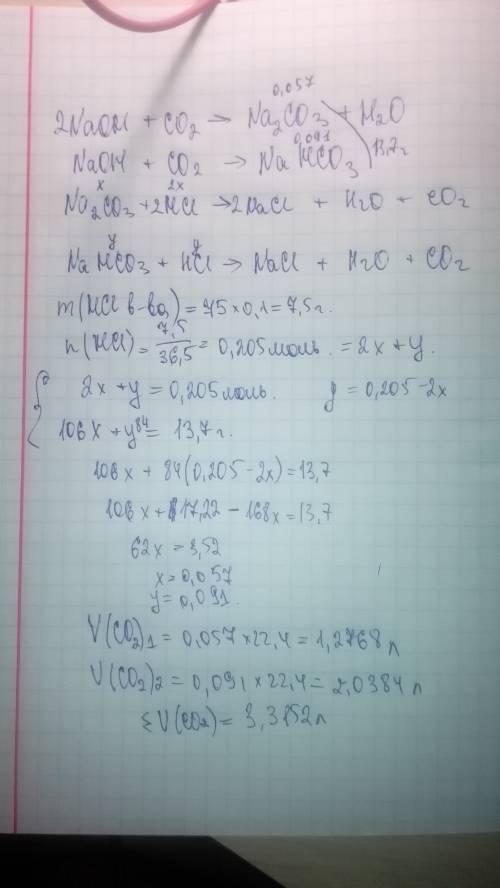 0,057
2NaOH + CO₂ → Na₂CO₃ + H₂O
0,091 13,7г
NaOH + CO₂ → NaHCO₃
x 2x
Na₂CO₃ + 2HCl → 2NaCl + H₂O + CO₂
y y
NaHCO₃ + HCl → NaCl + H₂O + CO₂
m(HCl в-ва) = 75 × 0,1 = 7,5 г.
n(HCl) = 7,5/36,5 = 0,205 моль. = 2x + y.
2x + y = 0,205 моль. y = 0,205 - 2x
106x + y84 = 13,7 г.
106x + 84(0,205 - 2x) = 13,7
106x + 17,22 - 168x = 13,7
62x = 3,52
x = 0,057
y = 0,091.
V(CO₂)₁ = 0,057 × 22,4 = 1,2768 л
V(CO₂)₂ = 0,091 × 22,4 = 2,0384 л
ΣV(CO₂) = 3,3152 л